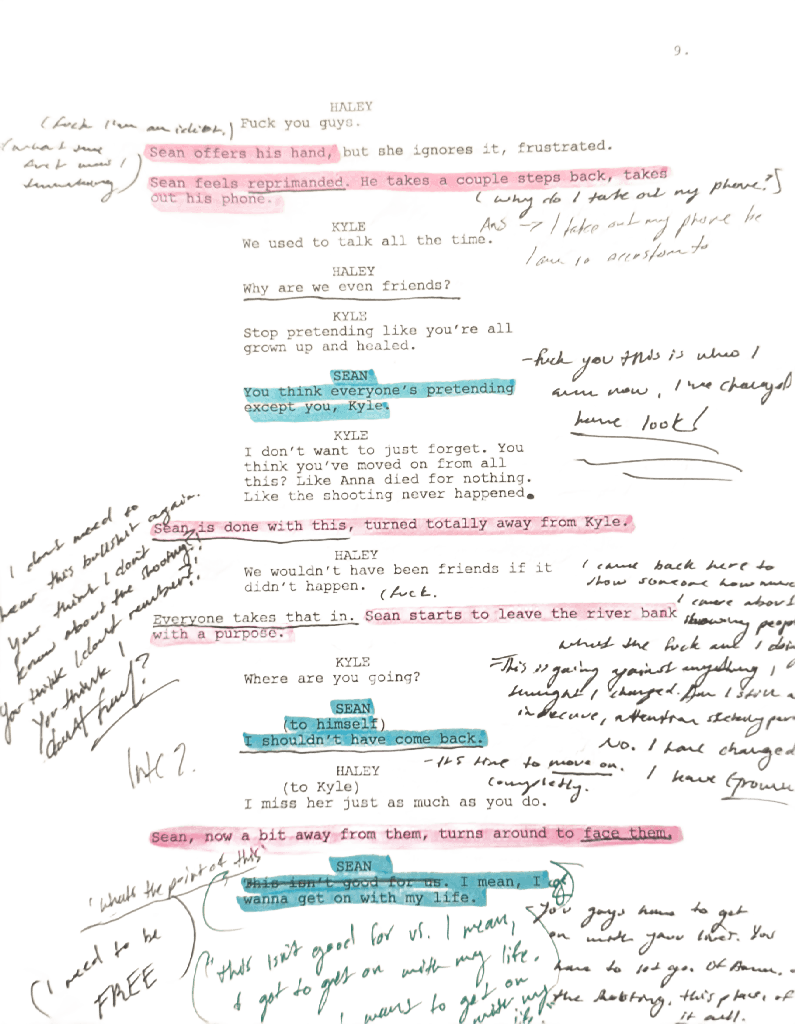 9.
HALEY
(fuck I'm an idiot,) Fuck you guys.
Sean offers his hand, but she ignores it, frustrated.
Sean feels reprimanded. He takes a couple steps back, takes
out his phone.
(why do I take out my phone?]
KYLE
We used to talk all the time.
Ans -> I take out my phone bc
I am so accustom to
HALEY
Why are we even friends?
KYLE
Stop pretending like you're all
grown up and healed.
SEAN
You think everyone's pretending
except you, Kyle.
-fuck you this is who I
am now, I've changed
have look!
KYLE
I don't want to just forget. You
think you've moved on from all
this? Like Anna died for nothing.
Like the shooting never happened.
I dont need to
hear this bullshit again.
Your think I don't
know about the shooting?!
You think I dont remember?!
You think I
dont feel?
Sean is done with this, turned totally away from Kyle.
HALEY
We wouldn't have been friends if it
didn't happen.
(fuck.
I came back here to
show someone how much
I care about
showing people
Everyone takes that in. Sean starts to leave the river bank
with a purpose.
what the fuck am I doing
-This is going against anything I
thought I changed. Am I still an
insecure, attention seeking
No. I have changed
I have Grown
KYLE
Where are you going?
SEAN
(to himself)
I shouldn't have come back.
-It's time to move on.
completly.
HALEY
(to Kyle)
I miss her just as much as you do.
Sean, now a bit away from them, turns around to face them.
SEAN
This isn't good for us. I mean, I
wanna get on with my life.
'whats the point of this'
(I need to be
FREE
"This isn't good for us. I mean,
I got to get on with my life.
I want to get on
with my
life."
You guys have to get
on with your lives. You
have to let go. Of Anna,
the shooting, this place, of
it all.